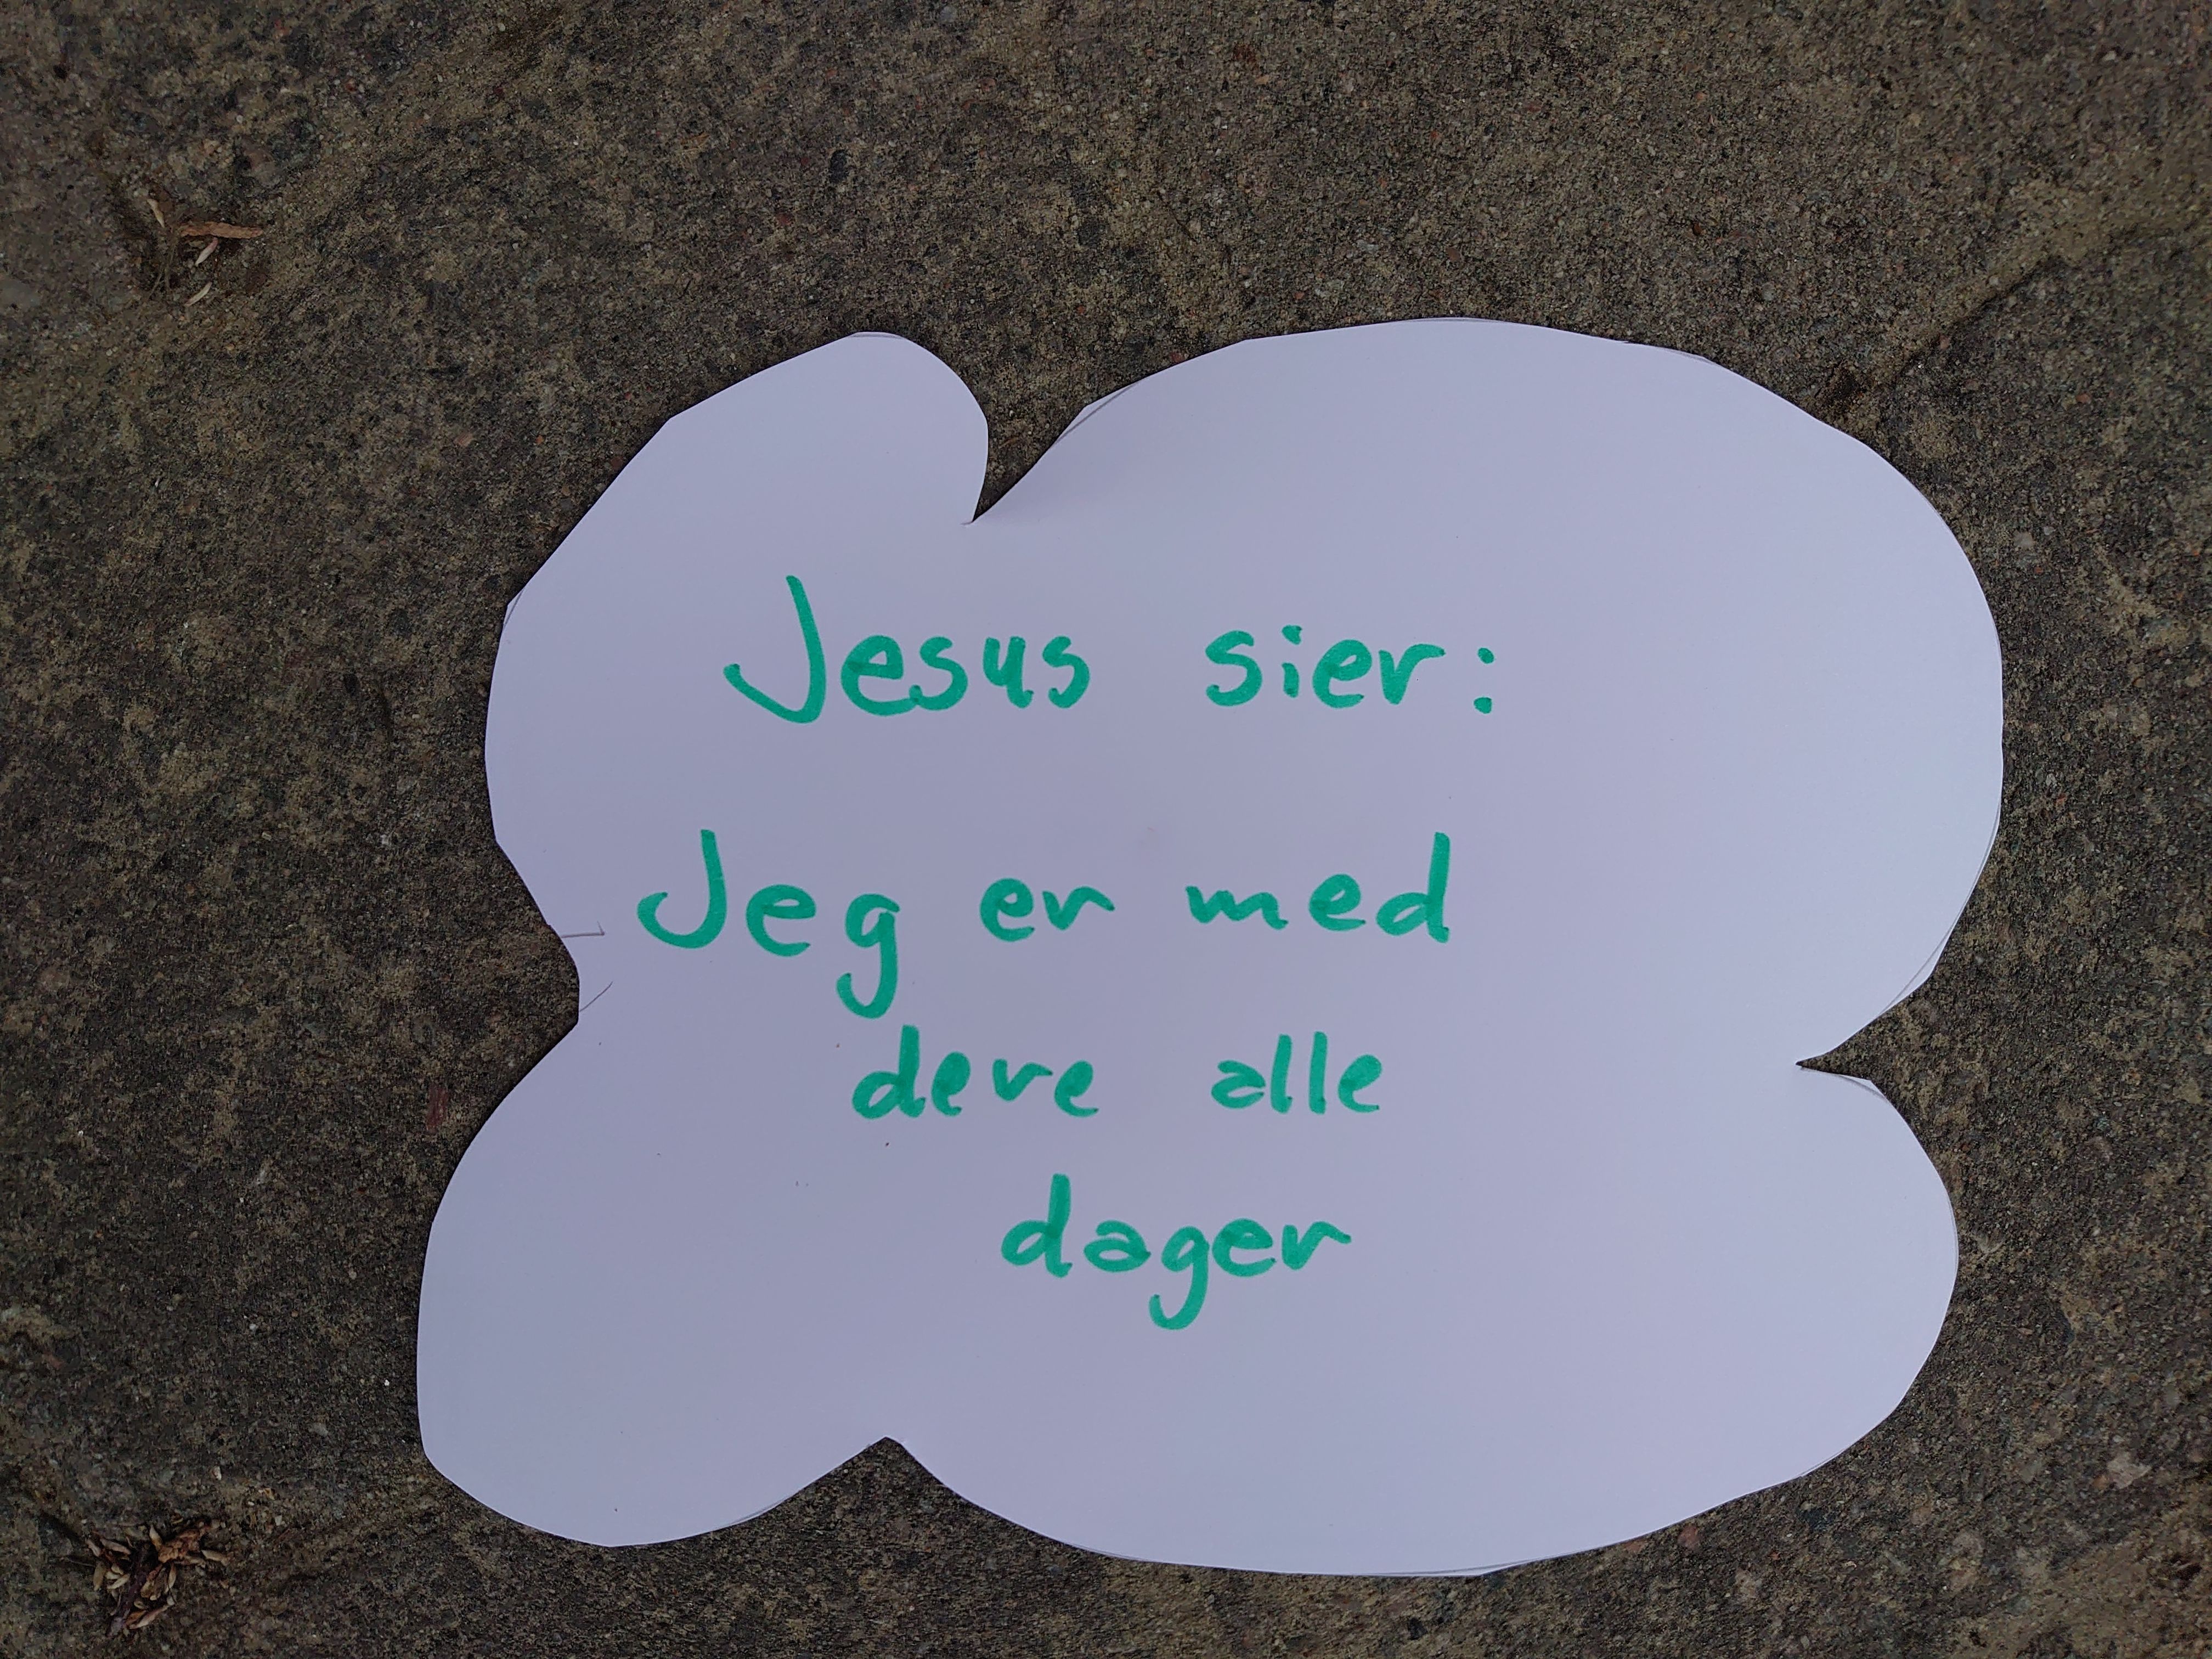 Jesus sier:
Jeg er med
dere alle
dager